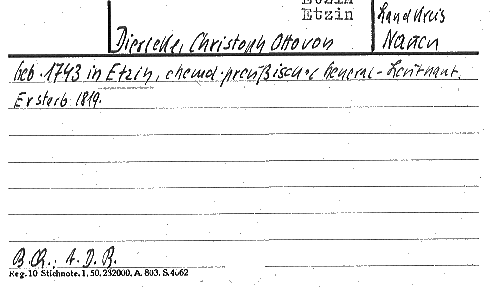 Etzin
Etzin
Landkreis
Diericke, Christoph Otto von
Nauen
Geb. 1743 in Etzin, ehemal. preußischer General-Leutnant.
Er starb 1819.
B.Ch. A.D.B.
Reg. 10 Stichnote. 1, 50, 232000. A. 803. S. 4062